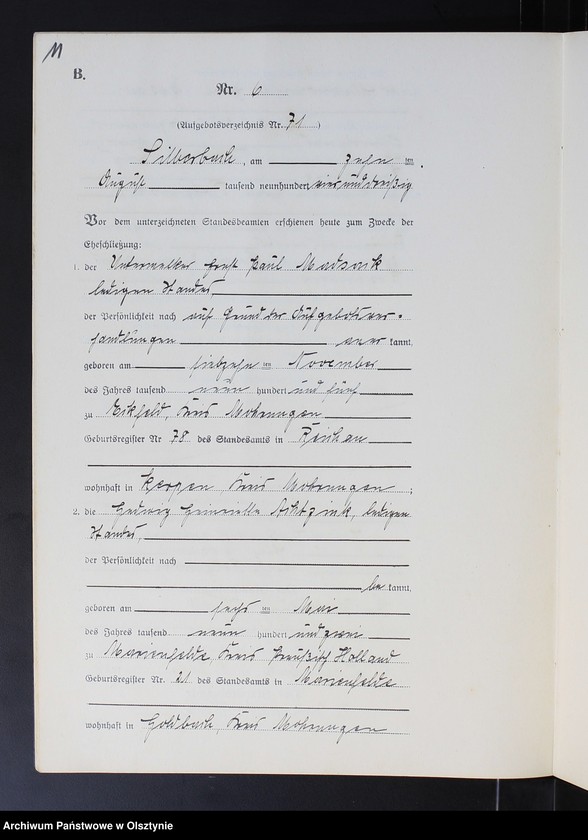 M
B.
Nr. 6
(Aufgebotsverzeichnis Nr. 71)
Silberbach, am zehnten
August tausend neunhundert vierunddreißig
Vor dem unterzeichneten Standesbeamten erschienen heute zum Zwecke der
Eheschließung:
1. der Untermelker Ernst Paul
ledigen Standes
der Persönlichkeit nach auf Grund der Aufgebotsver-
handlungen anerkannt,
geboren am siebzehnten November
des Jahres tausend neun hundert und fünf
zu Eckfeld, Kreis Mohrungen
Geburtsregister Nr 78 des Standesamts in Reichau
wohnhaft in Karpen, Kreis Mohrungen;
2. die Hedwig Henriette ledigen
Standes,
der Persönlichkeit nach
bekannt,
geboren am sechsten Mai
des Jahres tausend neun hundert und zwei
zu Marienfelde, Kreis Preußisch Holland
Geburtsregister Nr. 21 des Standesamts in Marienfelde
wohnhaft in Goldbach, Kreis Mohrungen
Archiwum Państwowe w Olsztynie